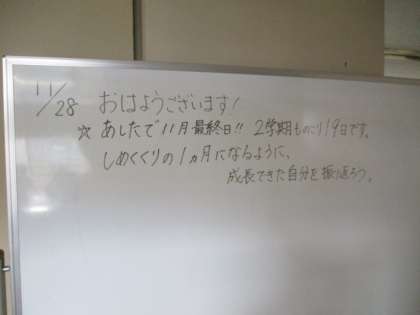 11/28 おはようございます!
☆ あしたで11月最終日!! 2学期ものこり19日です。
しめくくりの1ヵ月になるように、
成長できた自分を振り返ろう。